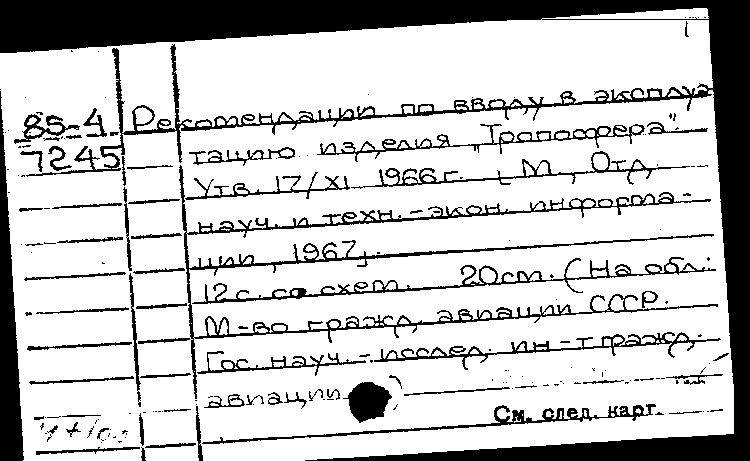 85-4 Рекомендации по вводу в эксплуа
7245 тацию изделия „Тропосфера".
Утв. 17/XI 1966г. [М., Отд.
науч. и техн.-экон. информа-
ции, 1967].
12с. со схем. 20см. (На обл.:
М-во гражд. авиации СССР.
Гос. науч.-исслед. ин-т гражд.
авиации)
См. след. карт.